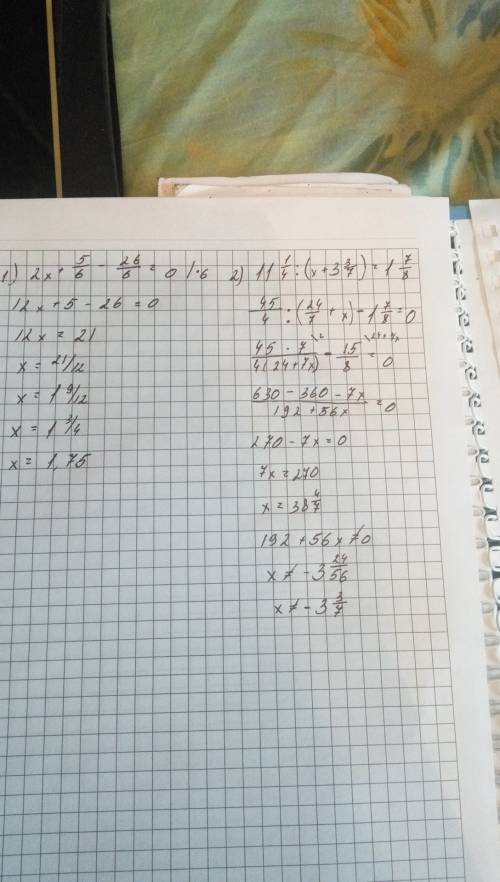 1) 2x + 5/6 - 26/6 = 0 | · 6
12x + 5 - 26 = 0
12x = 21
x = 21/12
x = 1 9/12
x = 1 3/4
x = 1,75
2) 11 1/4 : (x + 3 3/7) = 1 7/8
45/4 : (24/7 + x) - 1 7/8 = 0
45 · 7 / 4(24 + 7x) \2 - 15/8 \24 + 7x = 0
630 - 360 - 7x / 192 + 56x = 0
270 - 7x = 0
7x = 270
x = 38 4/7
192 + 56x ≠ 0
x ≠ - 3 24/56
x ≠ - 3 3/7